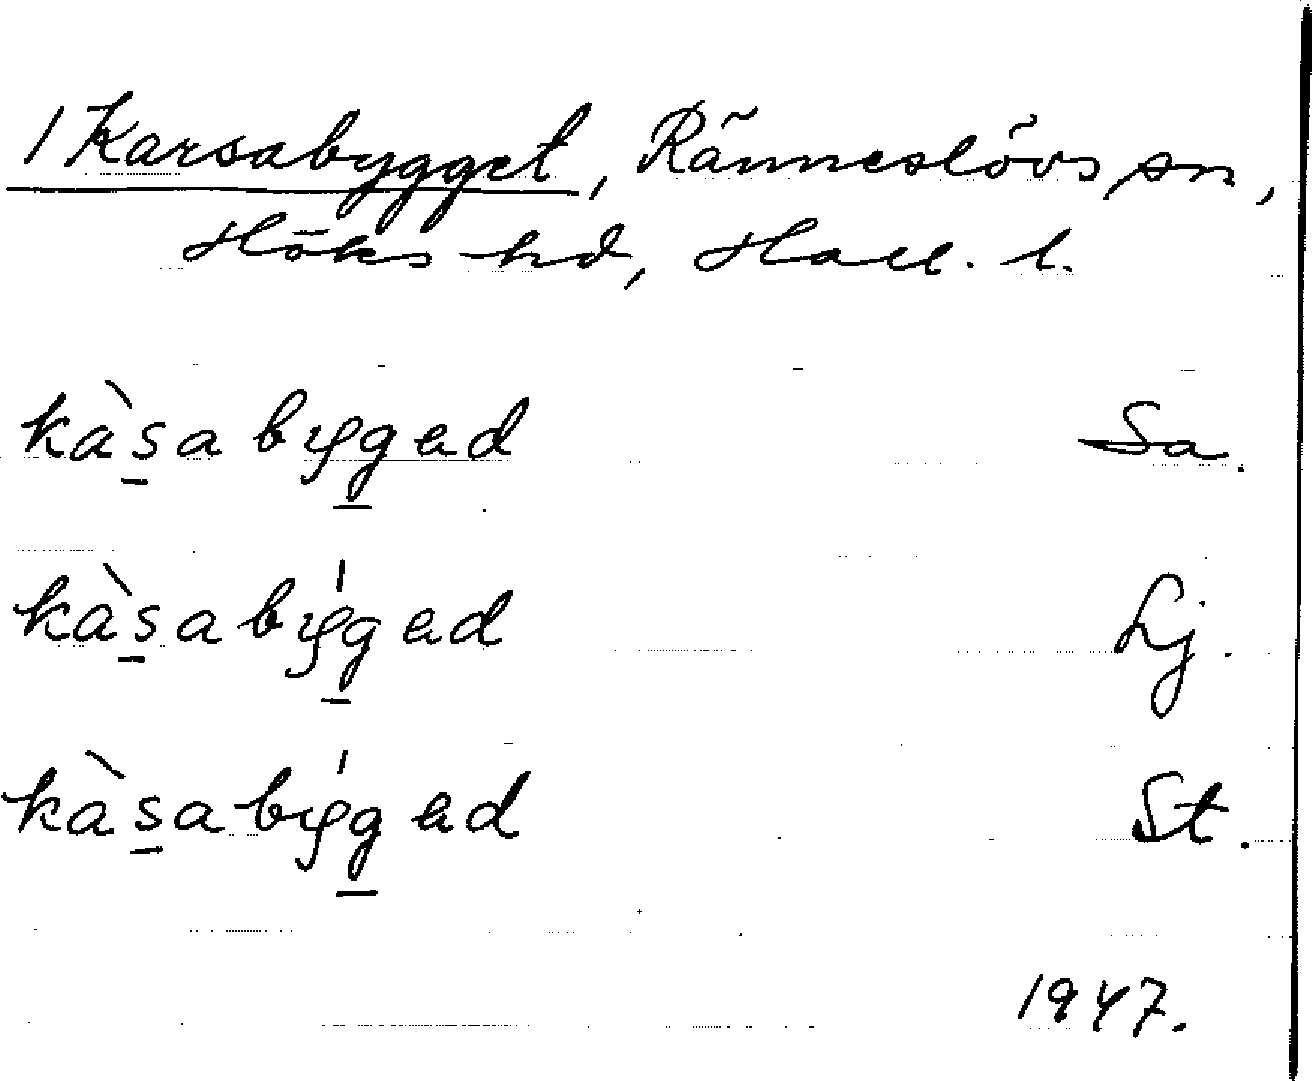 1 Karsabygget, Ränneslövs sn,
Höks hd, Hall. l.
kàs̲abyg̲ad Sa.
kàs̲abýg̲ad Lj.
kàs̲abýg̲ad St.
1947.